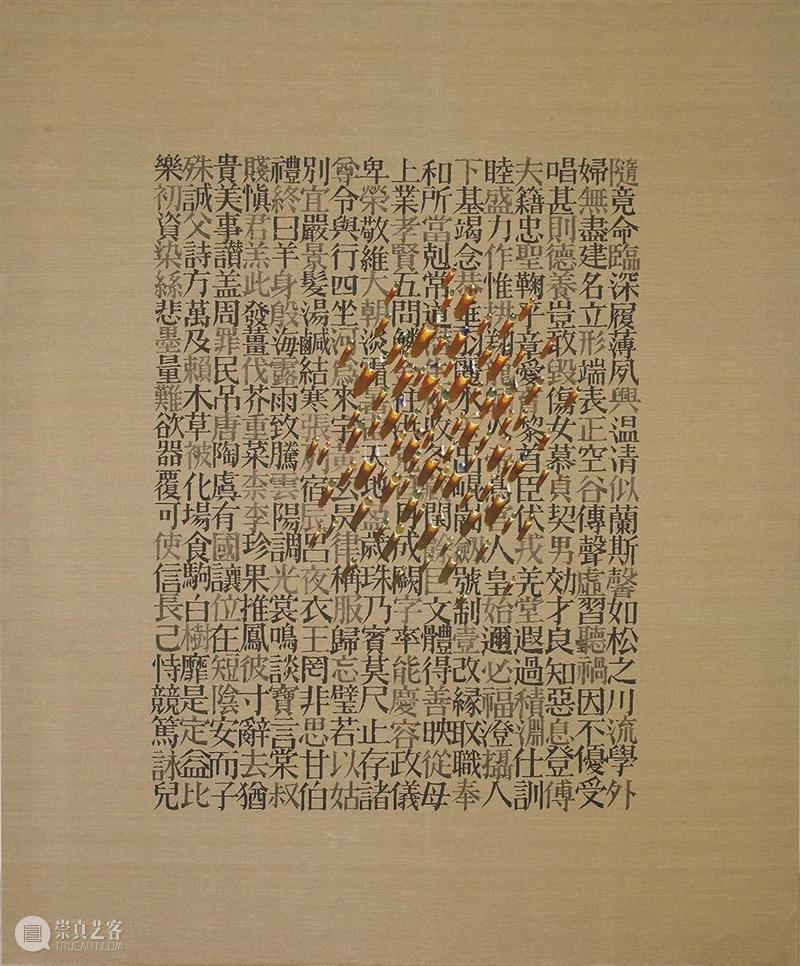 隨竟命臨深履薄夙興温凊似蘭斯馨如松之川流學外
婦無盡建名立形端表正空谷傳聲虛習聽禍因不優受
唱甚則德養豈敢毀傷女慕貞契男効才良知惡息登傅
夫籍忠聖鞠平章愛育黎首臣伏戎羌堂遐過積淵仕訓
睦盛力作惟拱翔龍火人皇始邇必福澄攝入
下基竭念恭垂羽水出崐岡劒號制壹改緣取職奉
和所當剋常道收閏餘巨文體得善映從母
上業孝賢五問鱗往月成闕字率能慶容政儀
卑榮敬維大朝淡霜天地盈歲珠乃賓莫尺止存諸
尊令與行四坐河為來宇黃玄昃律稱服歸忘璧若以姑
別宜嚴景髮湯鹹結寒張列宿辰呂夜衣王罔非思甘伯
禮終曰羊身殷海露雨致騰雲陽調光裳鳴談寶言棠叔
賤愼君羔此發薑伐芥重菜柰李珍果推鳳彼寸辭去猶
貴美事讚盖周罪民吊唐陶虞有國讓位在短陰安而子
殊誠父詩方萬及賴木草被化場食駒白樹靡是定益比
樂初資染絲悲墨量難欲器覆可使信長己恃競篤詠兒
崇真艺客
TRUEART.COM